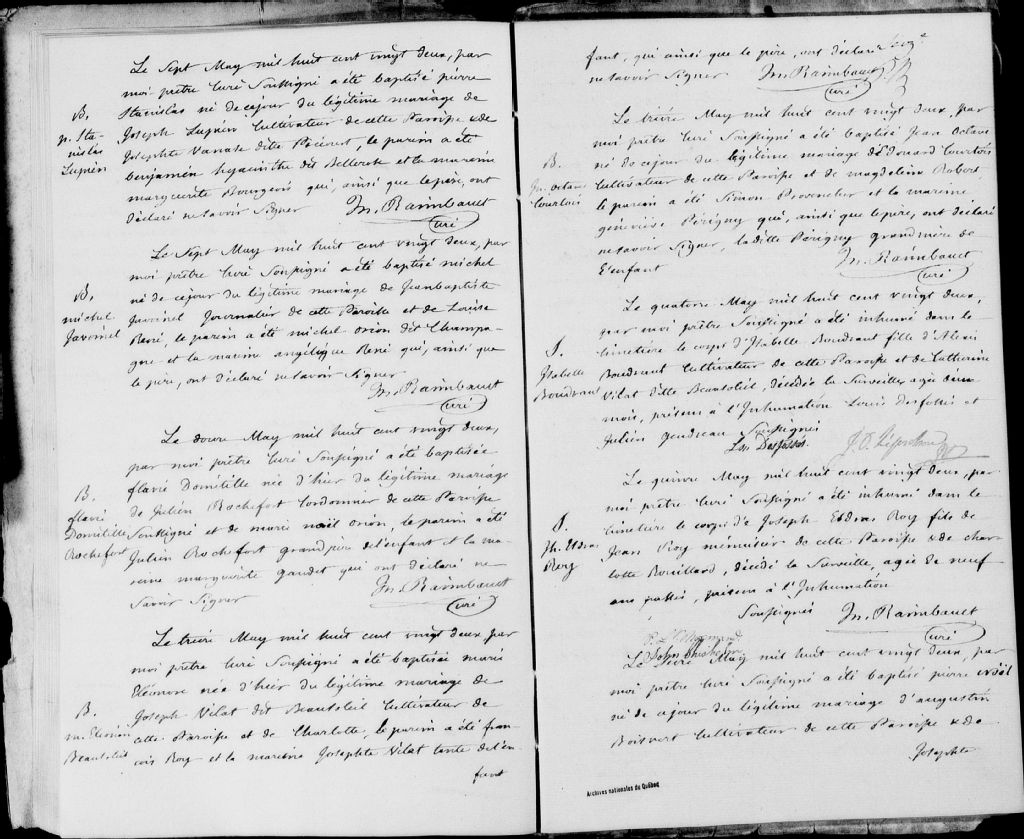 Le Sept May mil huit cent vingt deux, par
moi prêtre Curé Soussigné a été baptisé pierre
Stanislas né de ce jour du légitime mariage de
B.
p. Sta-
nislas
Lupien
Joseph Lupien Cultivateur de cette Paroisse & de
Josephte Vanasse dite Précourt, le parein a été
benjamin hyacinthe dit Bellerose et la mareine
marguerite Bourgeois qui, ainsi que le père, ont
déclaré ne savoir Signer Jn. Raimbault
Curé
Le Sept May mil huit cent vingt deux, par
moi prêtre Curé Soussigné a été baptisé michel
B.
michel
né de ce jour du légitime mariage de Jean baptiste
Journalier de cette Paroisse et de Louise
René, le parein a été michel orion dit Champa-
gne et la mareine angélique René qui, ainsi que
le père, ont déclaré ne savoir Signer
Jn. Raimbault
Curé
Le douze May mil huit cent vingt deux,
par moi prêtre Curé Soussigné a été baptisée
B.
flavie
Domitille
Rochefort
flavie Domitille née d'hier du légitime mariage
de Julien Rochefort Cordonnier de cette Paroisse
Soussigné et de marie noël orion, le parein a été
Julien Rochefort grand père de l'enfant et la ma-
reine marguerite gaudet qui ont déclaré ne
Savoir Signer Jn. Raimbault
Curé
Le treize May mil huit cent vingt deux par
moi prêtre Curé Soussigné a été baptisée marie
Eléonore née d'hier du légitime mariage de
B.
Beausoleil
Joseph Vilat dit Beausoleil Cultivateur de
cette Paroisse et de Charlotte, le parein a été fran-
cois Roy et la mareine Josephte Vilat tante de l'en-
fant
fant, qui ainsi que le père, ont déclaré
ne savoir Signer Jn. Raimbault
Curé
Le treize May mil huit cent vingt deux, par
moi prêtre Curé Soussigné a été baptisé Jean Octave
B.
Jn. octave
Courtois
né de ce jour du légitime mariage d'Edouard Courtois
Cultivateur de cette Paroisse et de magdeleine Robert,
le parein a été Simon Provencher et la mareine
geneviève Périgny qui, ainsi que le père, ont déclaré
ne savoir Signer, la dite Périgny grand mère de
l'enfant Jn. Raimbault
Curé
Le quatorze May mil huit cent vingt deux,
par moi prêtre Soussigné a été inhumé dans le
S.
Isabelle
Boudreau
Cimetière le corps d'Isabelle Boudreau fille d'Alexis
Boudreau Cultivateur de cette Paroisse et de Catherine
Vilat dite Beausoleil, décédée la Surveille, agée
mois, présens à l'Inhumation Louis Desfossés et
Julien gendreau Soussignés
Ls. Desfossés
Le quinze May mil huit cent vingt deux, par
moi prêtre Curé Soussigné a été inhumé dans le
S.
Jh. Esdras
Roy
Cimetière le corps de Joseph Esdras Roy fils de
Jean Roy menuisier de cette Paroisse & de char-
lotte Rouillard, décédé la Surveille, agée de neuf
ans passés, présens à l'Inhumation
Soussignés Jn. Raimbault
Curé
John Chisholm
Le Seize May mil huit cent vingt deux, par
moi prêtre Curé Soussigné a été baptisé pierre noël
né de ce jour du légitime mariage d'augustin
Boisvert Cultivateur de cette Paroisse & de
Josephte
Archives nationales du Québec